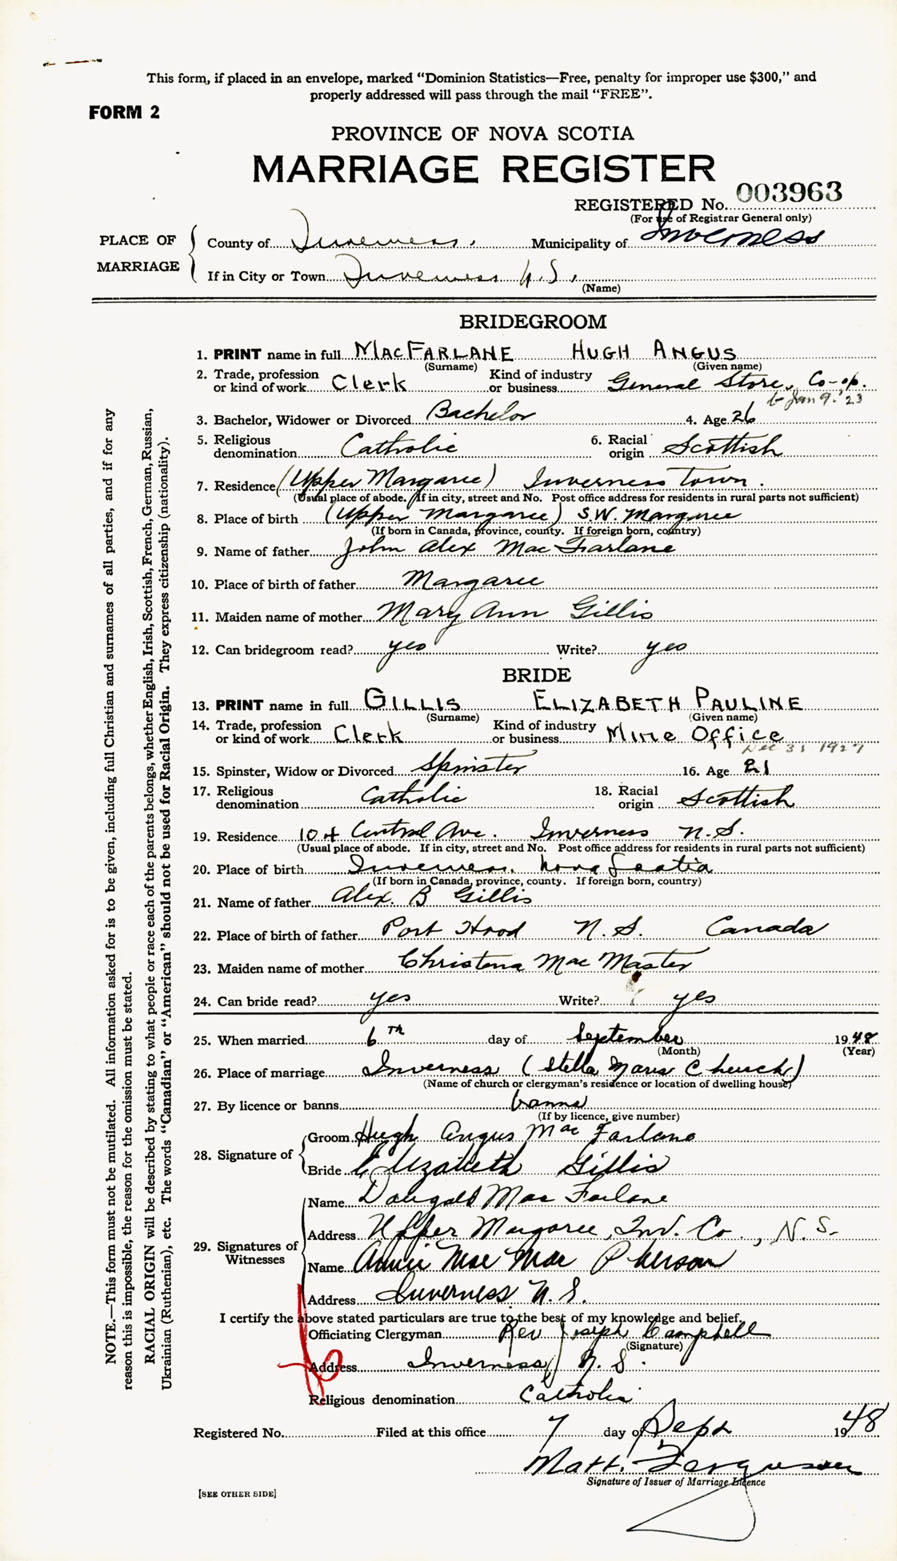 This form, if placed in an envelope, marked “Dominion Statistics—Free, penalty for improper use $300,” and
properly addressed will pass through the mail “FREE”.
FORM 2
PROVINCE OF NOVA SCOTIA
MARRIAGE REGISTER
REGISTERED No. 003963
(For use of Registrar General only)
PLACE OF MARRIAGE
County of Inverness. Municipality of Inverness
If in City or Town Inverness N.S.
(Name)
BRIDEGROOM
1. PRINT name in full MACFARLANE HUGH ANGUS
(Surname) (Given name)
2. Trade, profession or kind of work Clerk Kind of industry or business General Store, Co-op.
b Jan 9. '23
3. Bachelor, Widower or Divorced Bachelor 4. Age 26
5. Religious denomination Catholic 6. Racial origin Scottish
7. Residence (Upper Margaree) Inverness Town.
(Usual place of abode. If in city, street and No. Post office address for residents in rural parts not sufficient)
8. Place of birth (Upper Margaree) S.W. Margaree
(If born in Canada, province, county. If foreign born, country)
9. Name of father John Alex MacFarlane
10. Place of birth of father Margaree
11. Maiden name of mother Mary Ann Gillis
12. Can bridegroom read? yes Write? yes
BRIDE
13. PRINT name in full GILLIS ELIZABETH PAULINE
(Surname) (Given name)
14. Trade, profession or kind of work Clerk Kind of industry or business Mine Office
Dec 31 1927
15. Spinster, Widow or Divorced Spinster 16. Age 21
17. Religious denomination Catholic 18. Racial origin Scottish
19. Residence 104 Central Ave. Inverness N.S.
(Usual place of abode. If in city, street and No. Post office address for residents in rural parts not sufficient)
20. Place of birth Inverness. Nova Scotia
(If born in Canada, province, county. If foreign born, country)
21. Name of father Alex. B Gillis
22. Place of birth of father Port Hood N.S. Canada
23. Maiden name of mother Christena MacMaster
24. Can bride read? yes Write? yes
25. When married 6th day of September 1948
(Month) (Year)
26. Place of marriage Inverness (Stella Maris Church)
(Name of church or clergyman's residence or location of dwelling house)
27. By licence or banns banns
(If by licence, give number)
28. Signature of
Groom Hugh Angus MacFarlane
Bride Elizabeth Gillis
29. Signatures of Witnesses
Name Dougald MacFarlane
Address Upper Margaree, Inv. Co., N.S.
Name Annie Mae MacPherson
Address Inverness N.S.
I certify the above stated particulars are true to the best of my knowledge and belief.
Officiating Clergyman Rev Joseph Campbell
(Signature)
Address Inverness N.S.
Religious denomination Catholic
Registered No. Filed at this office 7 day of Sept 1948
Matt. Ferguson
Signature of Issuer of Marriage Licence
[SEE OTHER SIDE]
NOTE.—This form must not be mutilated. All information asked for is to be given, including full Christian and surnames of all parties, and if for any
reason this is impossible, the reason for the omission must be stated.
RACIAL ORIGIN will be described by stating to what people or race each of the parents belongs, whether English, Irish, Scottish, French, German, Russian,
Ukrainian (Ruthenian), etc. The words “Canadian” or “American” should not be used for Racial Origin. They express citizenship (nationality).